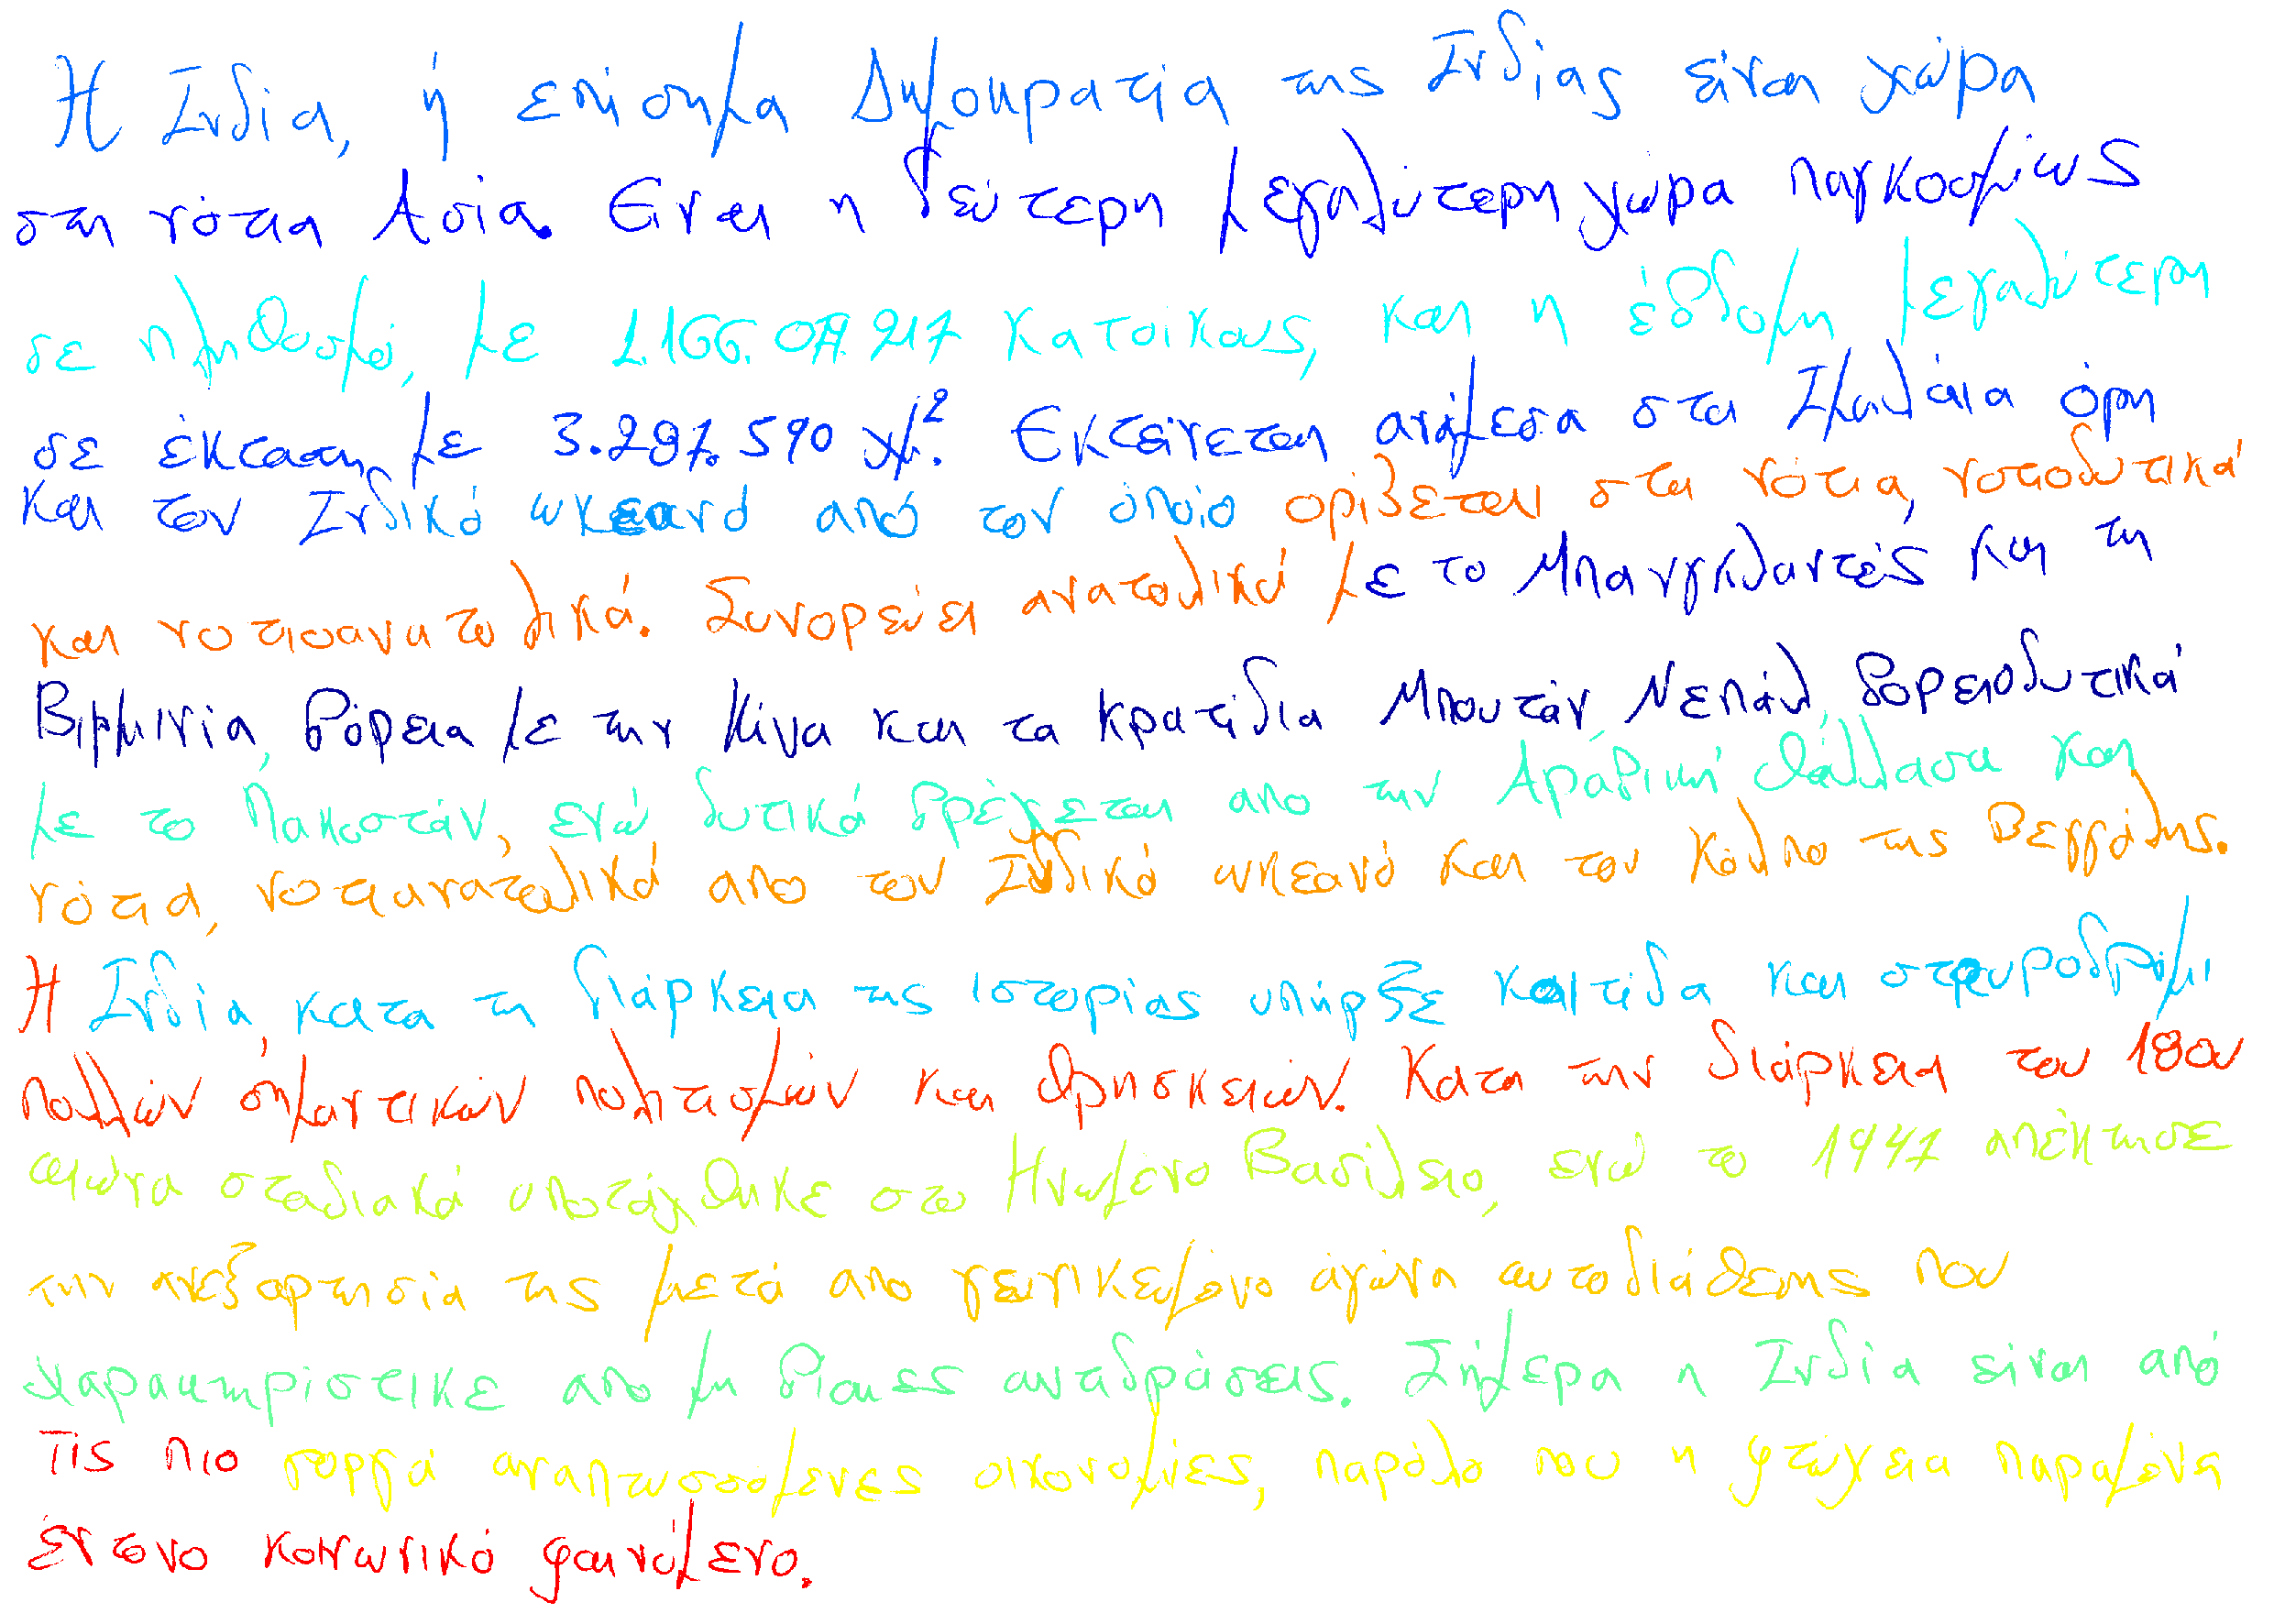 Η Ινδία, ή επίσημα Δημοκρατία της Ινδίας είναι χώρα
στη νότια Ασία. Είναι η δεύτερη μεγαλύτερη χώρα παγκοσμίως
σε πληθυσμό, με 1.166.079.217 κατοίκους, και η έβδομη μεγαλύτερη
σε έκταση με 3.287.590 χμ². Εκτείνεται ανάμεσα στα Ιμαλάια όρη
και τον Ινδικό ωκεανό από τον οποίο ορίζεται στα νότια, νοτιοδυτικά
και νοτιοανατολικά. Συνορεύει ανατολικά με το Μπανγκλαντές και τη
Βιρμανία, βόρεια με την Κίνα και τα κρατίδια Μπουτάν, Νεπάλ, βορειοδυτικά
με το Πακιστάν, ενώ δυτικά βρέχεται απο την Αραβική θάλλασα και
νότια, νοτιανατολικά απο τον Ινδικό ωκεανό και τον Κόλπο της Βεγγάλης.
Η Ινδία, κατα τη διάρκεια της ιστορίας υπήρξε κοιτίδα και σταυροδρόμι
πολλών σημαντικών πολιτισμών και θρησκειών. Κατα την διάρκεια του 18ου
αιώνα σταδιακά υποτάχθηκε στο Ηνωμένο Βασίλειο, ενώ το 1947 απέκτησε
την ανεξαρτησία της μετά απο γενικευμένο αγώνα αυτοδιάθεσης που
χαρακτηρίστικε απο μη βίαιες αντιδράσεις. Σήμερα η Ινδία είναι από
τις πιο γοργά αναπτυσσόμενες οικονομίες, παρόλο που η φτώχεια παραμένει
έντονο κοινωνικό φαινόμενο.